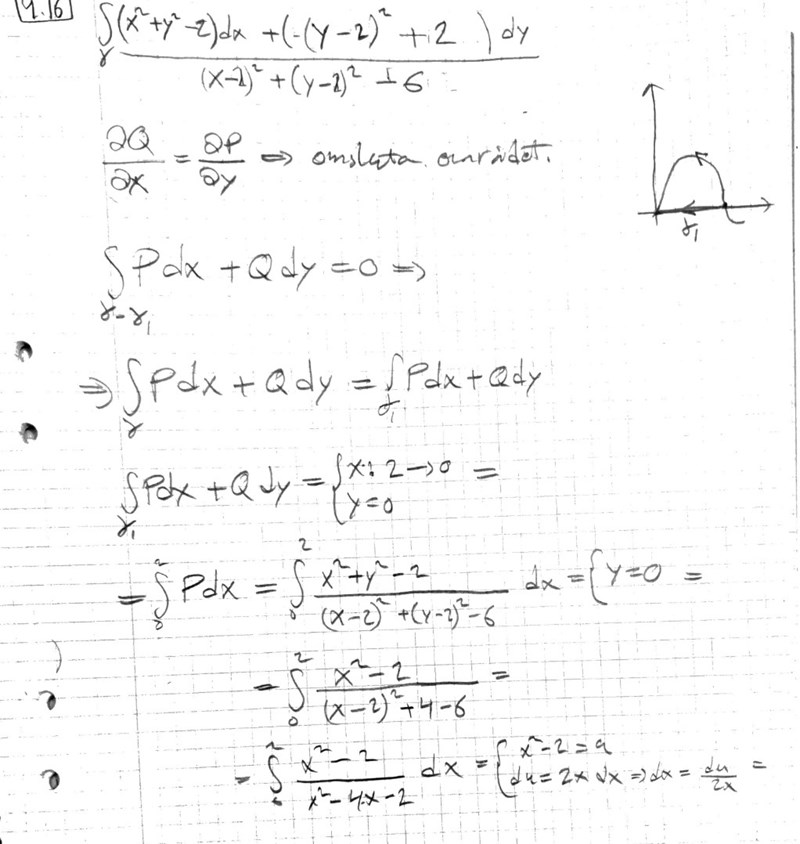 9.16
∫γ (x²+y²-2)dx + (-(y-2)²+2) dy / (x-2)²+(y-2)²-6
∂Q/∂x = ∂P/∂y ⇒ omsluta området.
γ₁
∫γ-γ₁ Pdx + Qdy = 0 ⇒
⇒ ∫γ Pdx + Qdy = ∫γ₁ Pdx + Qdy
∫γ₁ Pdx + Qdy = { x: 2→0 y=0 =
= ∫₀² Pdx = ∫₀² x²+y²-2 / (x-2)²+(y-2)²-6 dx = { y=0 =
= ∫₀² x²-2 / (x-2)²+4-6 =
= ∫₀² x²-2 / x²-4x-2 dx = { x²-2=u du=2x dx ⇒ dx = du/2x =